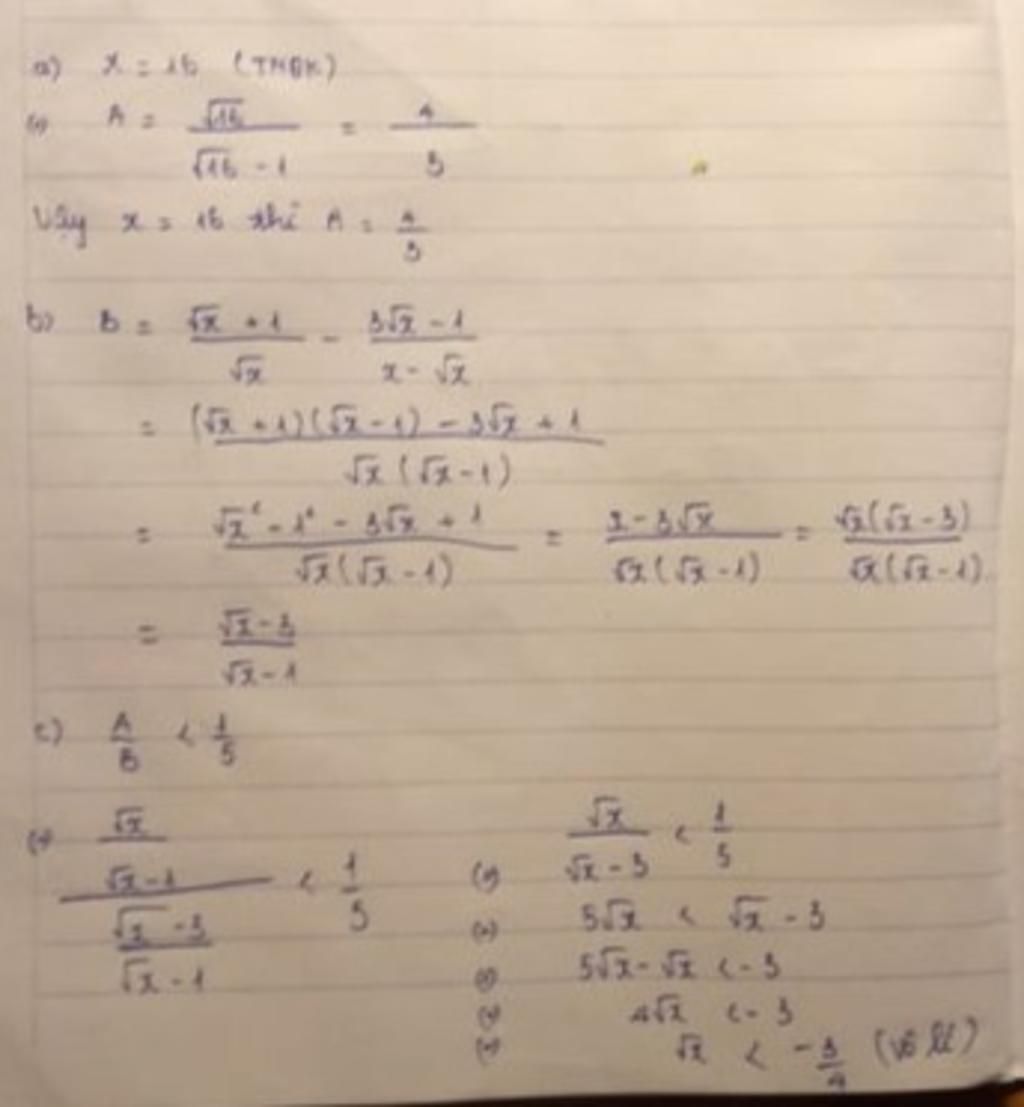 a) x = 16 (TMĐK)
(=) A = √16 / (√16 - 1) = 4/3
Vậy x = 16 thì A = 4/3
b) B = (√x + 1)/√x - (3√x - 1)/(x - √x)
= ((√x + 1)(√x - 1) - 3√x + 1) / (√x(√x - 1))
= (√x² - 1² - 3√x + 1) / (√x(√x - 1)) = (x - 3√x) / (√x(√x - 1)) = (√x(√x - 3)) / (√x(√x - 1))
= (√x - 3)/(√x - 1)
c) A/B < 1/5
(=) (√x/(√x - 1)) / ((√x - 3)/(√x - 1)) < 1/5
(=) √x/(√x - 3) < 1/5
(=) 5√x < √x - 3
(=) 5√x - √x < -3
(=) 4√x < -3
(=) √x < -3/4 (vô lí)